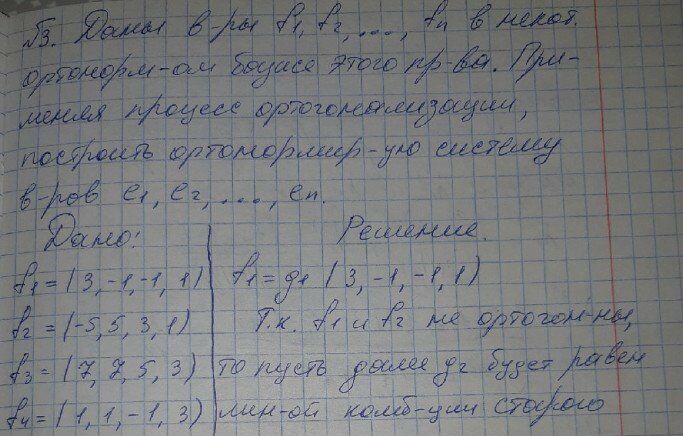 №3. Даны в-ры f1, f2, ..., fn в некот.
ортонорм-ом базисе этого пр-ва. При-
меняя процесс ортогонализации,
построить ортонормир-ую систему
в-ров e1, e2, ..., en.
Дано: Решение.
f1 = (3, -1, -1, 1) f1 = g1 (3, -1, -1, 1)
f2 = (-5, 5, 3, 1) Т.к. f1 и f2 не ортогон-ны,
f3 = (7, 7, 5, 3) то пусть далее g2 будет равен
f4 = (1, 1, -1, 3) лин-ой комб-ции старого